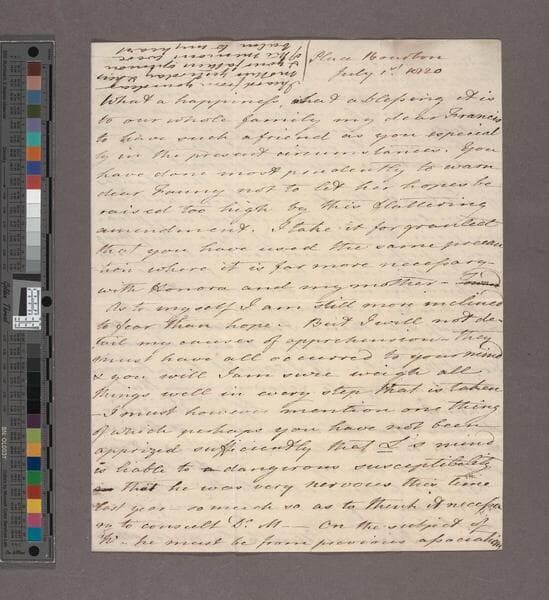 Place Bourbon
July 1st 1820
What a happiness, what a blessing it is
to our whole family my dear Frances
to have such a friend as you especial
ly in the present circumstances. You
have done most prudently to warn
dear Fanny not to let her hopes be
raised too high by this flattering
amendment. I take it for granted
that you have used the same precau
tion where it is far more necessary
with Honora and my mother –
As to myself I am still more inclined
to fear than hope. But I will not de-
tail my causes of apprehension – they
must have all occurred to your mind
& you will I am sure weigh all
things well in every step that is taken
– I must however mention one thing
of which perhaps you have not been
apprized sufficiently that L's mind
is liable to a dangerous susceptibility
– that he was very nervous this time
last year – so much so as to think it necessa
ry to consult Dr. M— On the subject of
W– he must be from previous associations